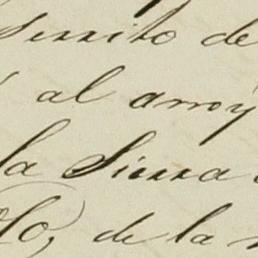 Serrito de
al arroy
la Sierra
lo, de la